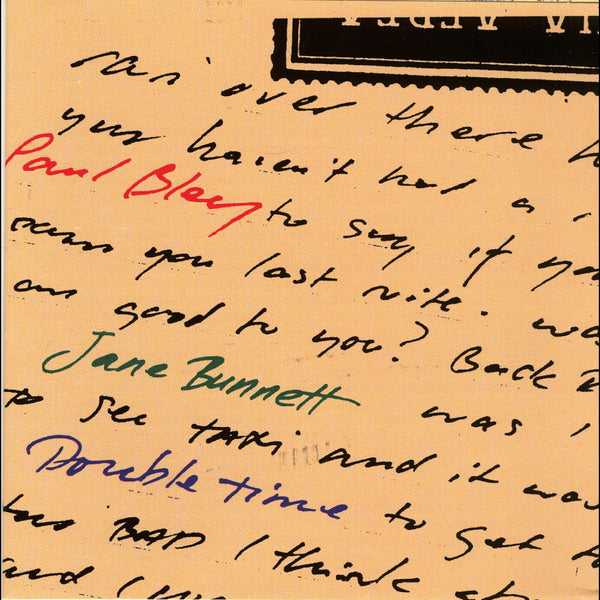 over there
haven't had a
Paul Bley to say if you
you last nite. was
good to you? Back
Jane Bunnett was,
to see TAXI and it was
Double time to get
too BAD I think
and I